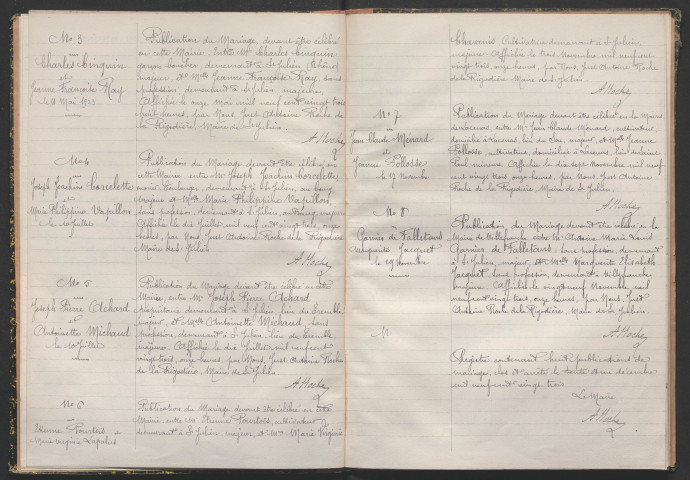 No 3
Charles Cinquin
et
Jeanne Françoise Ray
le 11 Mai 1923
Publication du Mariage devant être célébré
en cette Mairie. Entre Mr Charles Cinquin
garçon boucher, demeurant à St Julien (Rhône)
majeur, et Melle Jeanne Françoise Ray, sans
profession, demeurant à St Julien, majeure,
Affichée le onze Mai mil neuf cent vingt trois
huit heures, par Nous, Just Antoine Roche de
la Rigodière Maire de St Julien.
A Roche
No 4
Joseph Joachim
et
Marie Philippine Papillon
le 10 Juillet
Publication du Mariage devant être célébré en
cette Mairie entre Mr Joseph Joachim
demeurant à St Julien, au bourg,
majeur et Melle Marie Philippine Papillon,
sans profession, demeurant à St Julien, au Bourg, majeure
Affichée le dix Juillet mil neuf cent vingt trois, onze
heures, par Nous Just Antoine Roche de la Rigodière
Maire de St Julien
A Roche
No 5
Joseph Pierre Achard
et
Antoinette Michaud
le 10 Juillet
Publication du Mariage devant être célébré en cette
Mairie, entre Mr Joseph Pierre Achard
propriétaire demeurant à St Julien, lieu du
majeur, et Melle Antoinette Michaud, sans
profession, demeurant à St Julien, lieu de
majeure, Affichée le dix Juillet mil neuf cent
vingt trois, onze heures, par Nous, Just Antoine Roche
de la Rigodière, Maire de St Julien
A Roche
No 6
Etienne Pourtois
Marie Virginie Lapalus
Publication du Mariage devant être célébré en cette
Mairie, entre Mr Etienne Pourtois, cultivateur
demeurant à St Julien, majeur, et Melle Marie Virginie
cultivateur demeurant à St Julien,
majeure. Affichée le trois Novembre mil neuf cent
vingt trois, onze heures, par Nous, Just Antoine Roche
de la Rigodière Maire de St Julien
A Roche
No 7
Jean Claude Ménard
et
Jeanne Pollosse
le 17 Novembre
Publication du Mariage devant être célébré en la Mairie
de entre Mr Jean Claude Ménard, cultivateur,
domicilié à Lacenas, lieu du majeur, et Melle Jeanne
Pollosse cultivatrice domiciliée à
Paul, mineure Affichée le dix sept Novembre mil neuf
cent vingt trois, onze heures, par Nous Just Antoine
Roche de la Rigodière Maire de St Julien.
A Roche
No 8
Garnier de Falletans
Marguerite Jacquet
le 29 Novembre
Publication du Mariage devant être célébré en la
Mairie de Villefranche entre Mr Antoine Marie
Garnier de Falletans, sans profession, demeurant
à St Julien, majeur, et Melle Marguerite Elisabeth
Jacquet, sans profession, demeurant à Villefranche
majeure. Affichée le vingt neuf Novembre mil
neuf cent vingt trois, onze heures, par Nous, Just
Antoine Roche de la Rigodière, Maire de St Julien.
A Roche
Registre contenant huit publications de
mariage, clos et arrêté le trente et un décembre
mil neuf cent vingt trois
Le Maire
A Roche